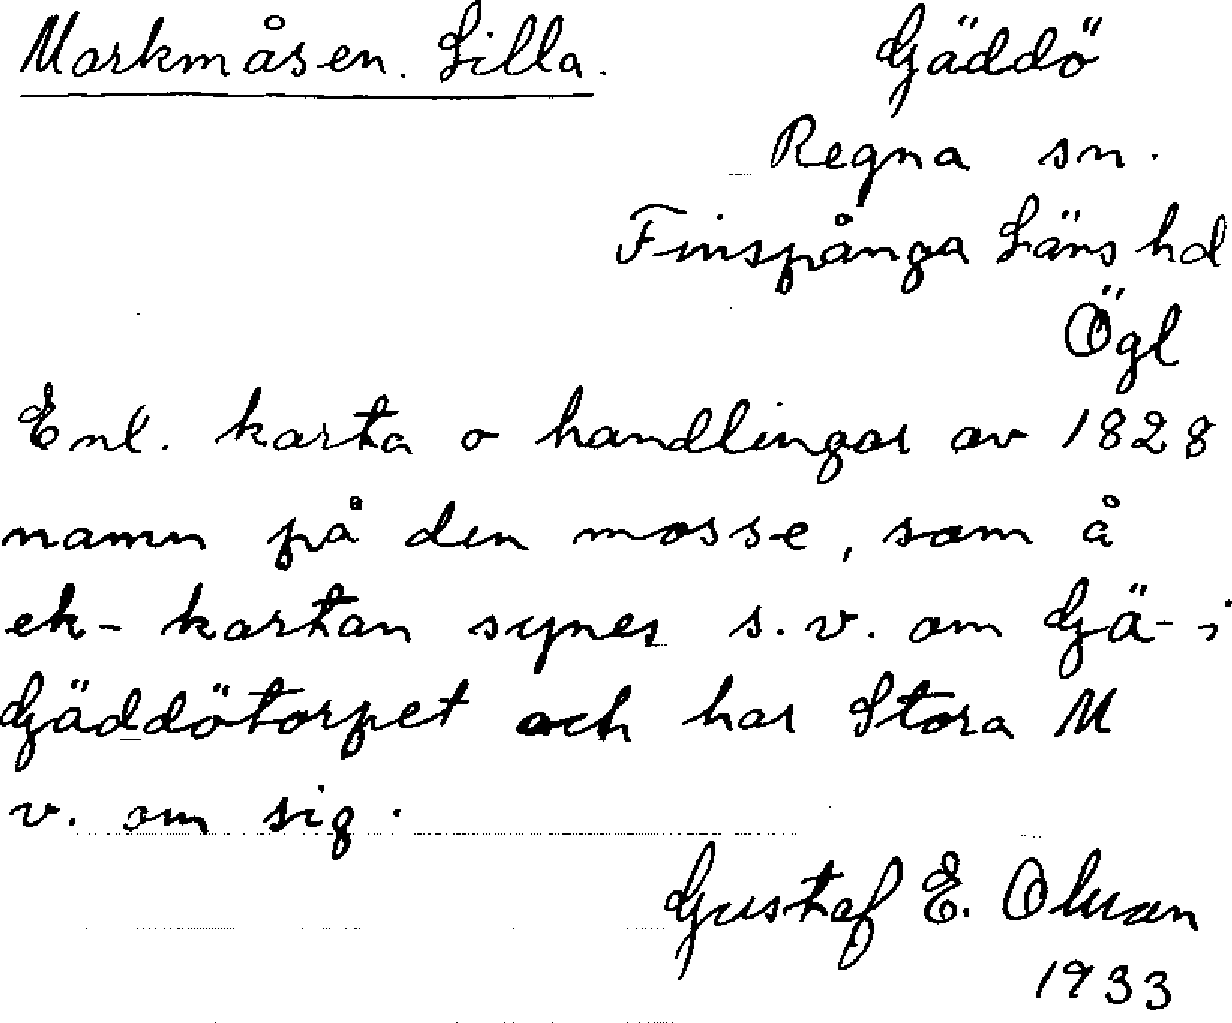 Markmåsen. Lilla. Gäddö
Regna sn.
Finspånga Läns hd
Ögl
Enl. karta o handlingar av 1828
namn på den mosse, som å
ek- kartan synes s.v. om Gä- i
Gäddötorpet och har Stora M
v. om sig.
Gustaf E.
1933